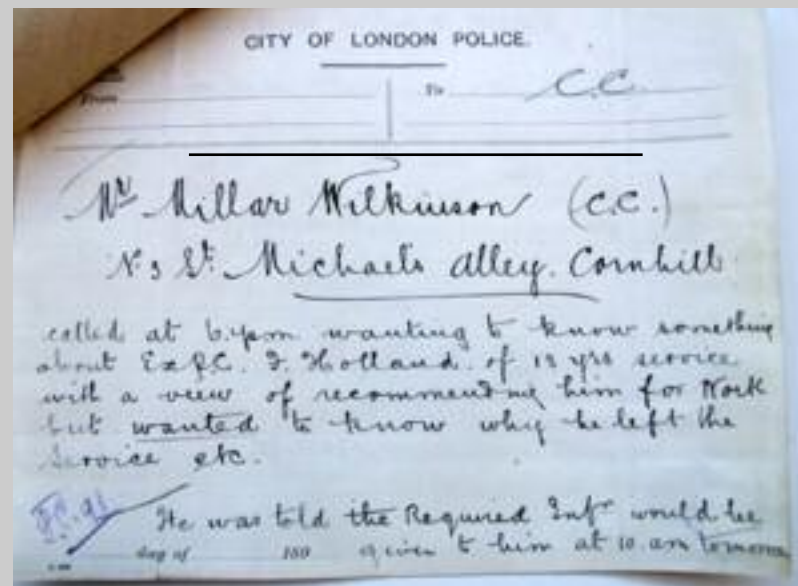 CITY OF LONDON POLICE.
From To C.C.
Mr Millar Wilkinson (C.C.)
No 3 St. Michaels Alley. Cornhill
called at 6.4pm wanting to know something
about Ex P.C. F. Holland. of 18 yrs service
with a view of recommending him for Work
but wanted to know why he left the
Service etc.
He was told the Required Infn would be
day of 189 given to him at 10. am tomorrow